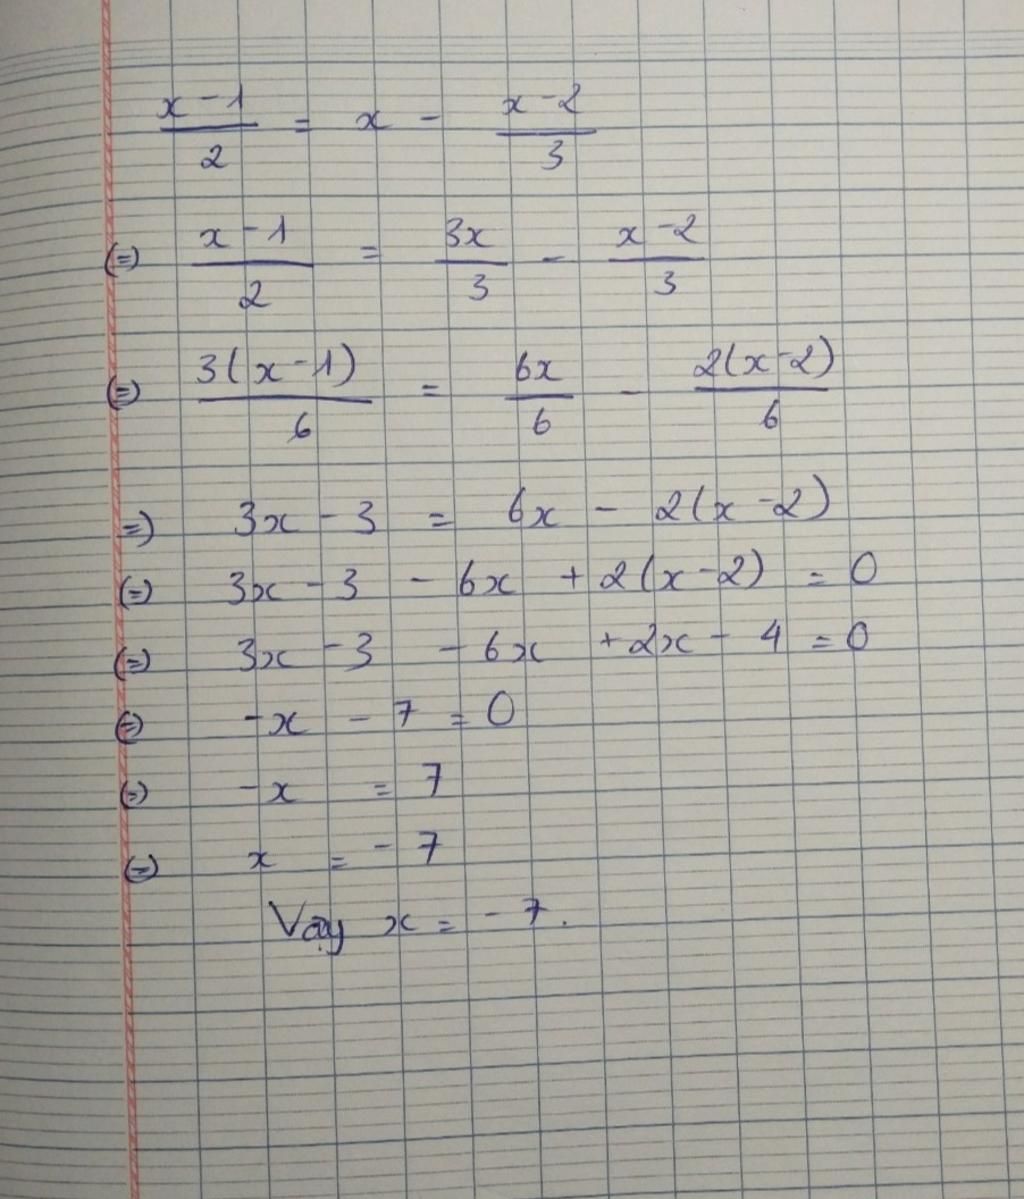 x - 1 / 2 = x - x - 2 / 3
(=) x - 1 / 2 = 3x / 3 - x - 2 / 3
(=) 3(x - 1) / 6 = 6x / 6 - 2(x - 2) / 6
=) 3x - 3 = 6x - 2(x - 2)
(=) 3x - 3 - 6x + 2(x - 2) = 0
(=) 3x - 3 - 6x + 2x - 4 = 0
(=) -x - 7 = 0
(=) -x = 7
(=) x = -7
Vậy x = -7.